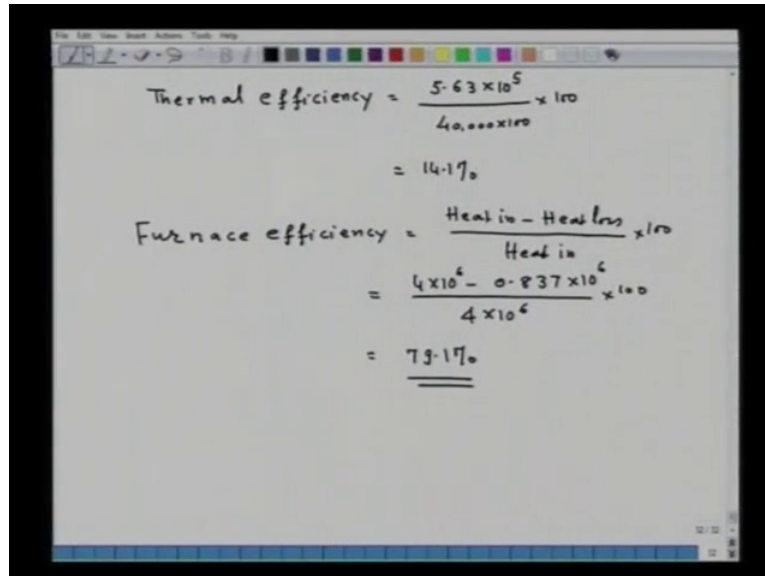 File Edit View Insert Actions Tools Help
Thermal efficiency = 5.63 × 10⁵ / 40,000 × 100 × 100
= 14.1%
Furnace efficiency = Heat in - Heat loss / Heat in × 100
= 4 × 10⁶ - 0.837 × 10⁶ / 4 × 10⁶ × 100
= 79.1%
12/12
12